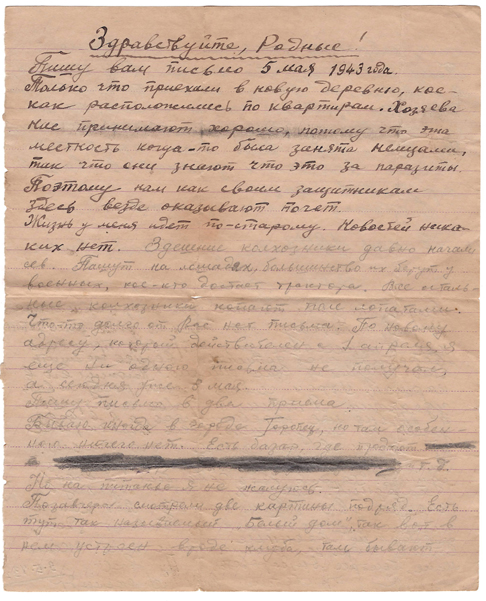 Здравствуйте, Родные!
Пишу вам письмо 5 мая 1943 года.
Только что приехали в новую деревню, кое-
как расположились по квартирам. Хозяева
нас принимают хорошо, потому что эта
местность когда-то была занята немцами,
так что они знают что это за паразиты.
Поэтому нам как своим защитникам
здесь везде оказывают почет.
Жизнь у меня идет по-старому. Новостей ника-
ких нет. Здешние колхозники давно начали
сев. Пашут на лошадях, большинство их берут у
военных, кое-кто достает трактора. Все осталь-
ные колхозники копают поле лопатами.
Что-то долго от Вас нет письма. По новому
адресу, который действителен с 1 апреля я
еще ни одного письма не получал,
а сегодня уже 5 мая.
Пишу письмо в два приема.
Бываю иногда в городе Торопец, но там особен-
ного ничего нет. Есть базар, где продают
а т. д.
Но на питание я не жалуюсь.
Позавчера смотрели две картины подряд. Есть
тут, так называемый "Белый дом", так вот в
нем устроен вроде клуба, там бывают